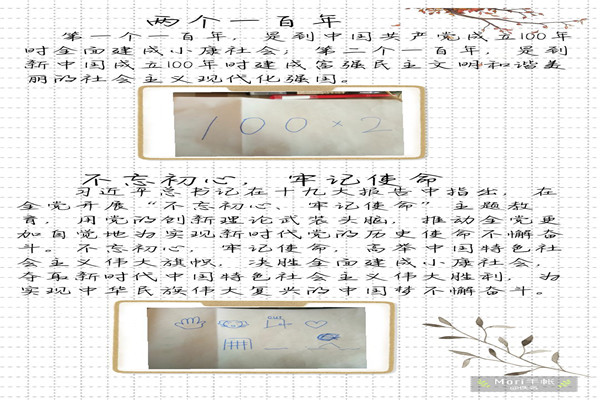 两个一百年
第一个一百年，是到中国共产党成立100年
时全面建成小康社会；第二个一百年，是到
新中国成立100年时建成富强民主文明和谐美
丽的社会主义现代化强国。
100×2
不忘初心，牢记使命
习近平总书记在十九大报告中指出，在
全党开展“不忘初心、牢记使命”主题教
育，用党的创新理论武装头脑，推动全党更
加自觉地为实现新时代党的历史使命不懈奋
斗。不忘初心，牢记使命，高举中国特色社
会主义伟大旗帜，决胜全面建成小康社会，
夺取新时代中国特色社会主义伟大胜利，为
实现中华民族伟大复兴的中国梦不懈奋斗。
Mori手帐